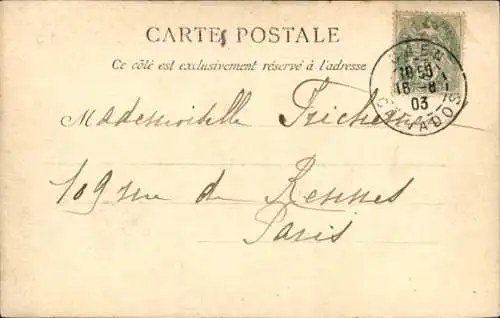 CARTE POSTALE
Ce côté est exclusivement réservé à l'adresse
CAEN
16 - 8
03
CALVADOS
Mademoiselle
109 rue de Rennes
Paris